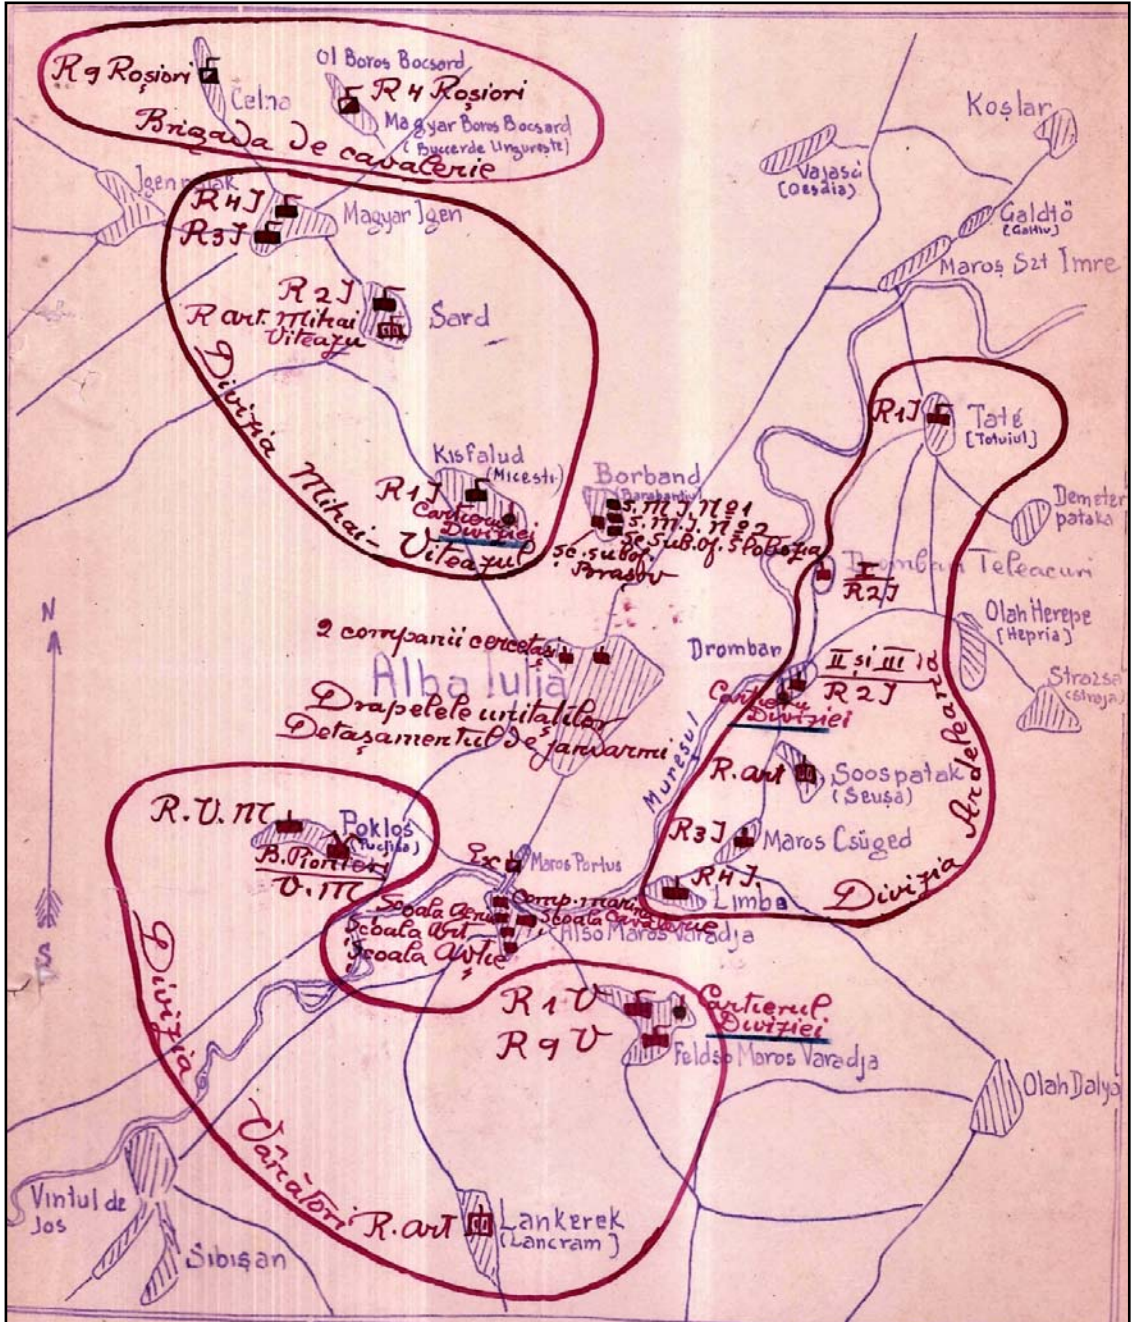 R 9 Roşiori
Celna
Ol Boros Bocsard
R 4 Roşiori
Magyar Boros Bocsard
(Buccerde Ungureşte)
Brigada de cavalerie
Koşlar
Vajasd
Galdtö
Maroş Szt Imre
R 4 J
R 3 J
Magyar Jgen
R 2 J
R art. Mihai
Viteazu
Sard
Divizia Mihai-Viteazul
Kisfalud
(Micesti)
R 1 J
Cartierul
Diviziei
Borband
(Barabantiu)
S. M. J. Nº 1
S. M. J. Nº 2
Sc. Sub. of. Slobozia
Sc. subof.
Braşov
R 1 J
Taté
[Totuiul]
Demeter
pataka
Drombar Teleacuri
I
R 2 J
Olah Herepe
(Hepria)
N
S
2 companii cercetaşi
Alba Iulia
Drapelele unităţilor
Detaşamentul de jandarmi
Drombar
II şi III
R 2 J
Cartierul
Diviziei
(Stroja)
Mureşul
R. art
Soospatak
(Seuşa)
R 3 J
Maros Csüged
R 4 J.
Limba
Divizia Ardeleană
R. V. M
Pokloş
B. Pionieri
V. M
Ex
Maros Portus
Comp. marină
Şcoala Cavalerie
Şcoala Art
Şcoala
Also Maros Varadja
R 1 V
R 9 V
Cartierul
Diviziei
Feldso Maros Varadja
Olah Dalya
Divizia Vânători
Vintul de
Jos
Sibişan
R. art
Lankerek
(Lancram]